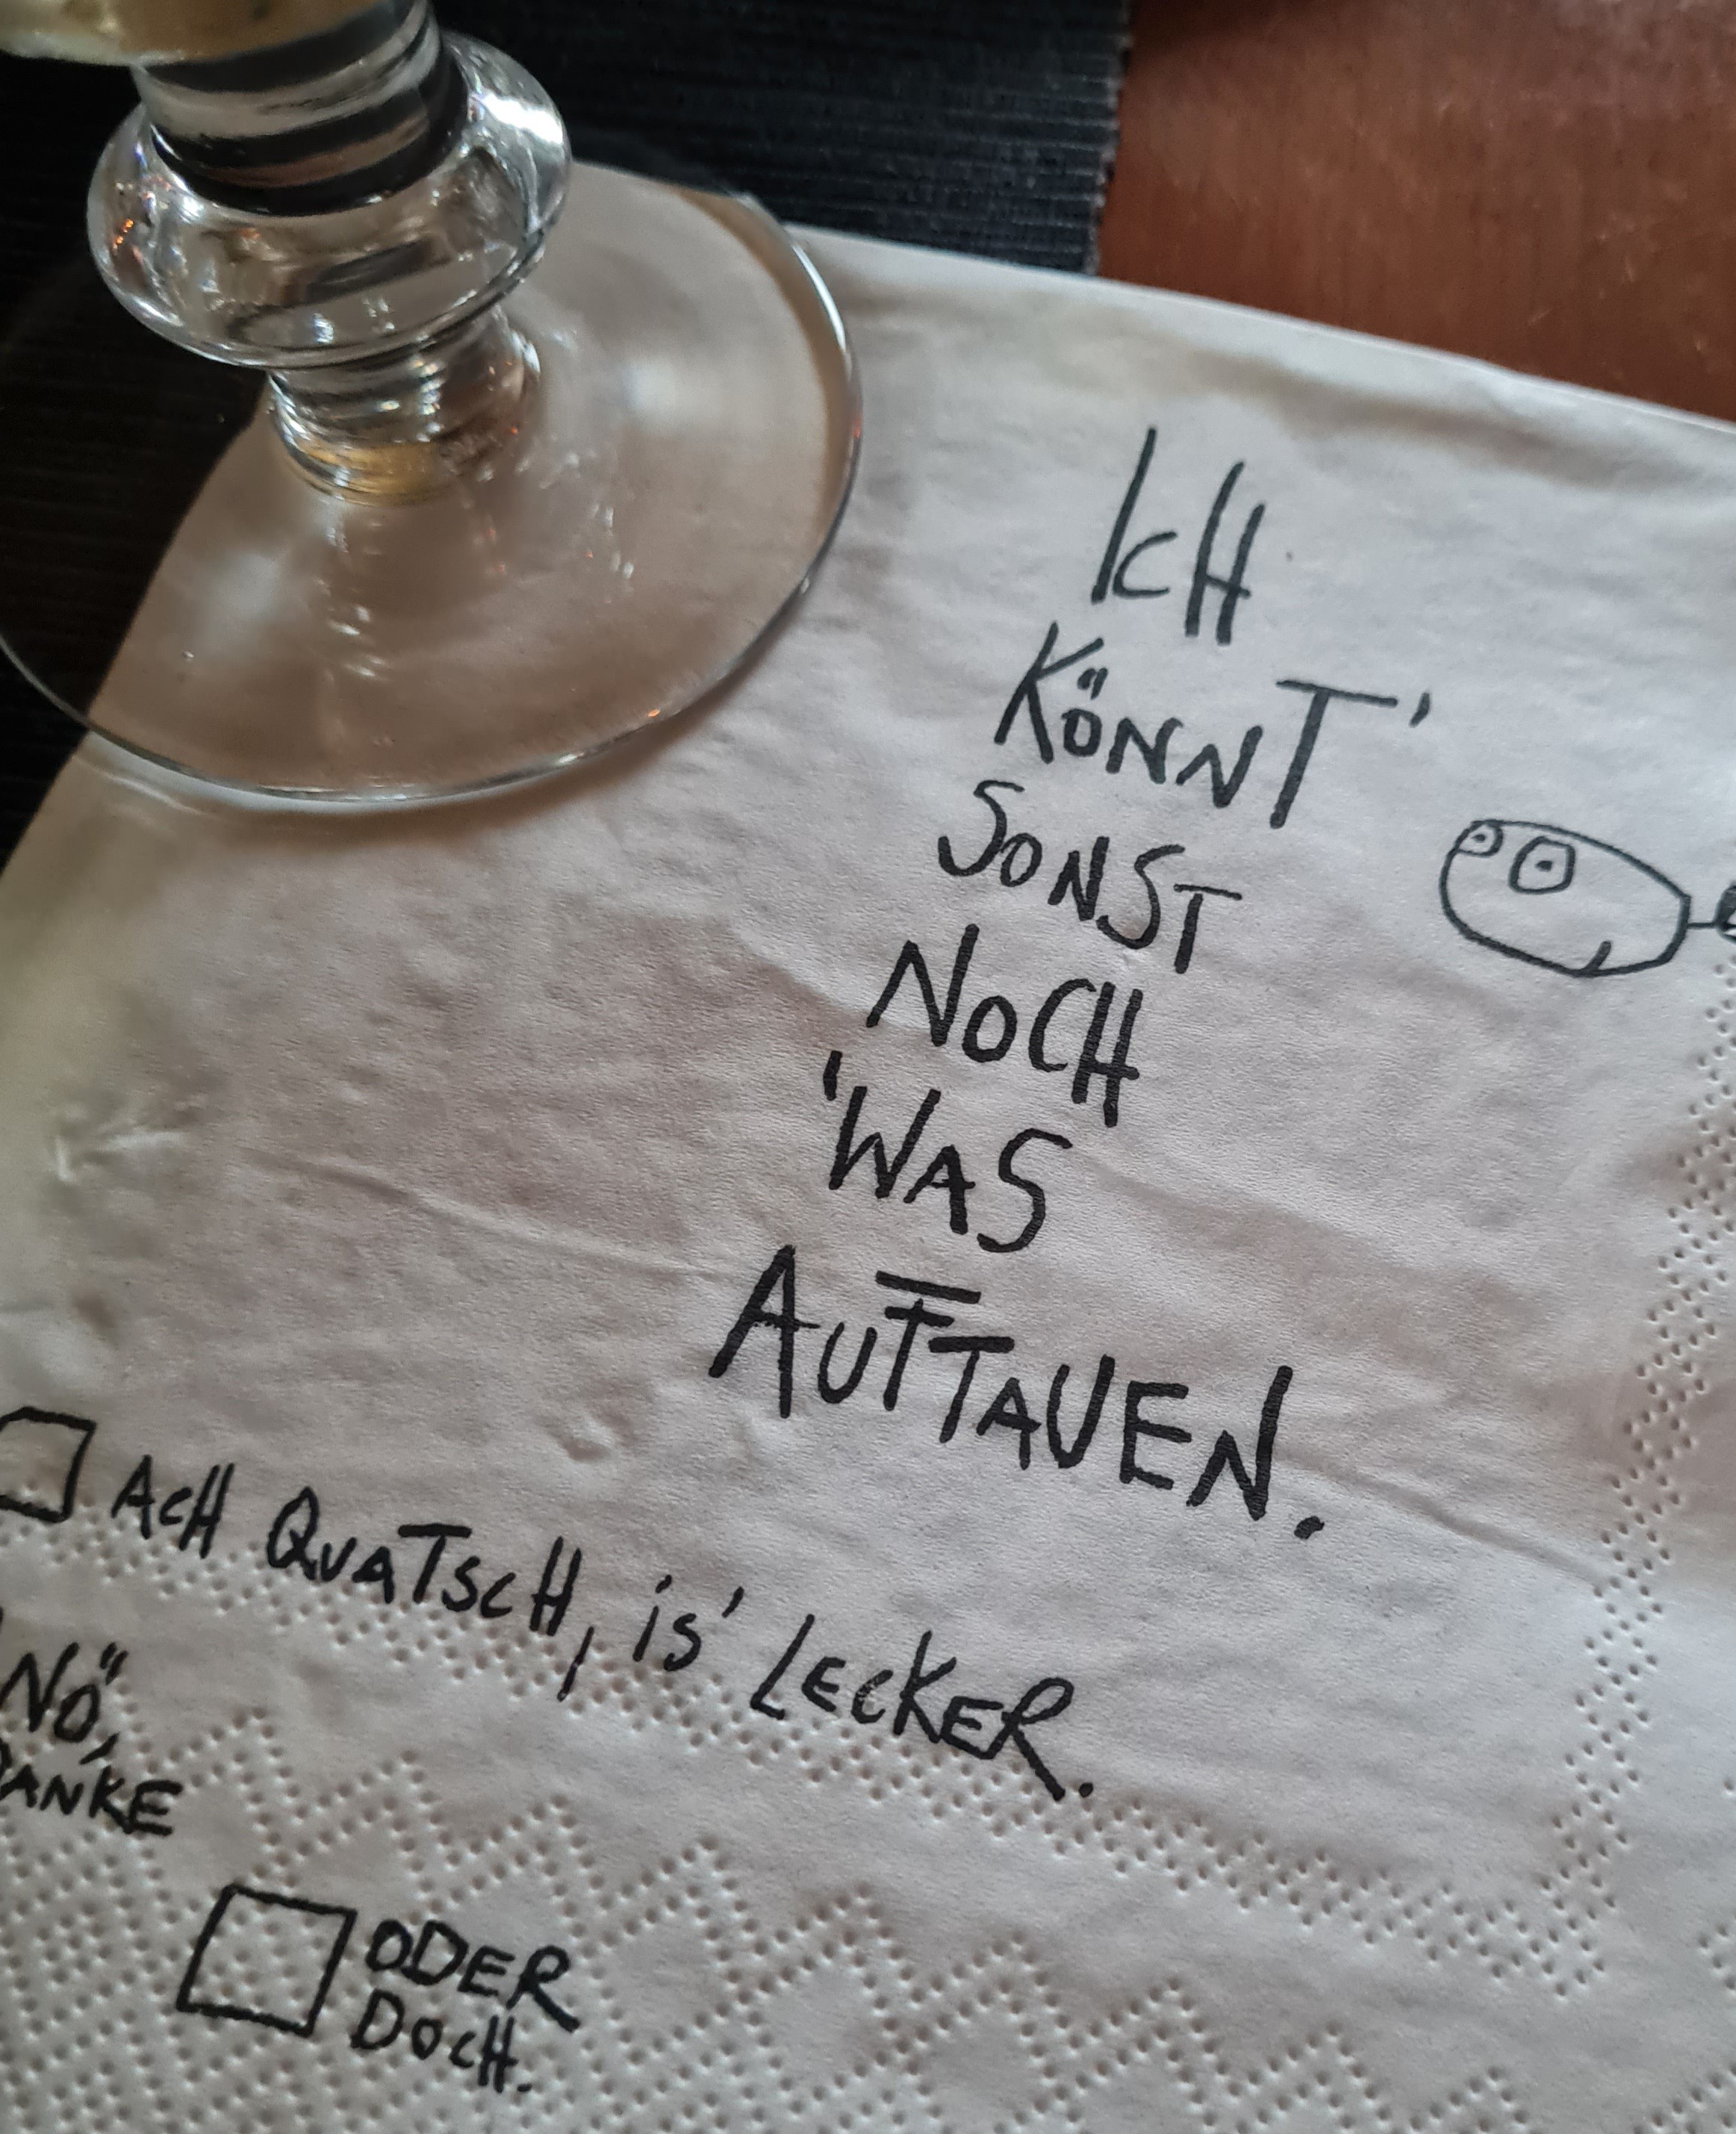 ICH
KÖNNT'
SONST
NOCH
'WAS
AUFTAUEN.
ACH QUATSCH, is' LECKER.
NÖ,
DANKE
ODER
DOCH.